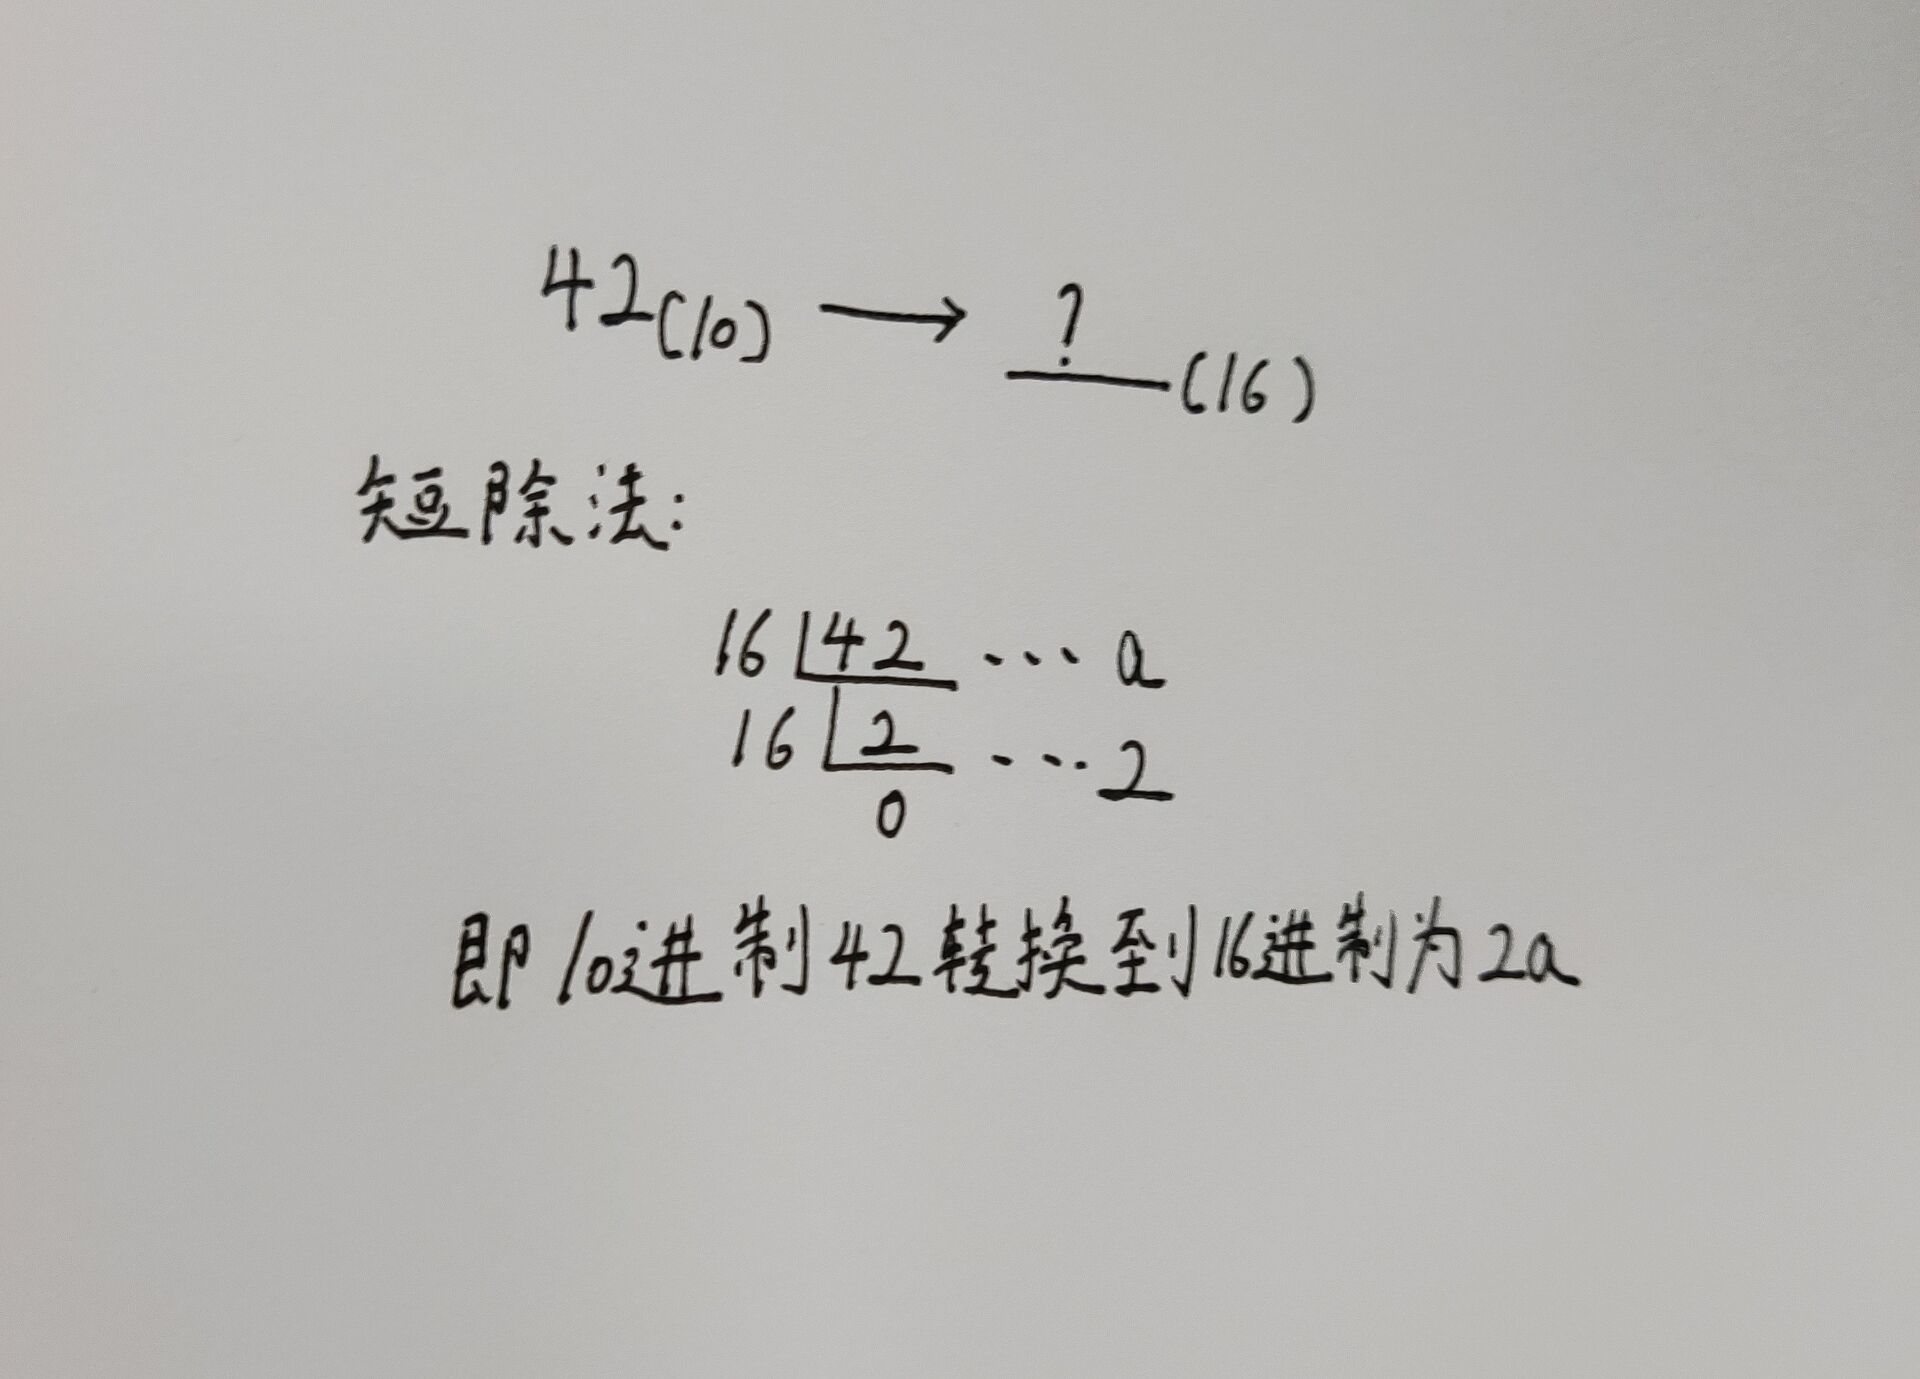 42(10) → ?(16)
短除法:
16 42 ··· a
16 2 ··· 2
0
即10进制42转换到16进制为2a